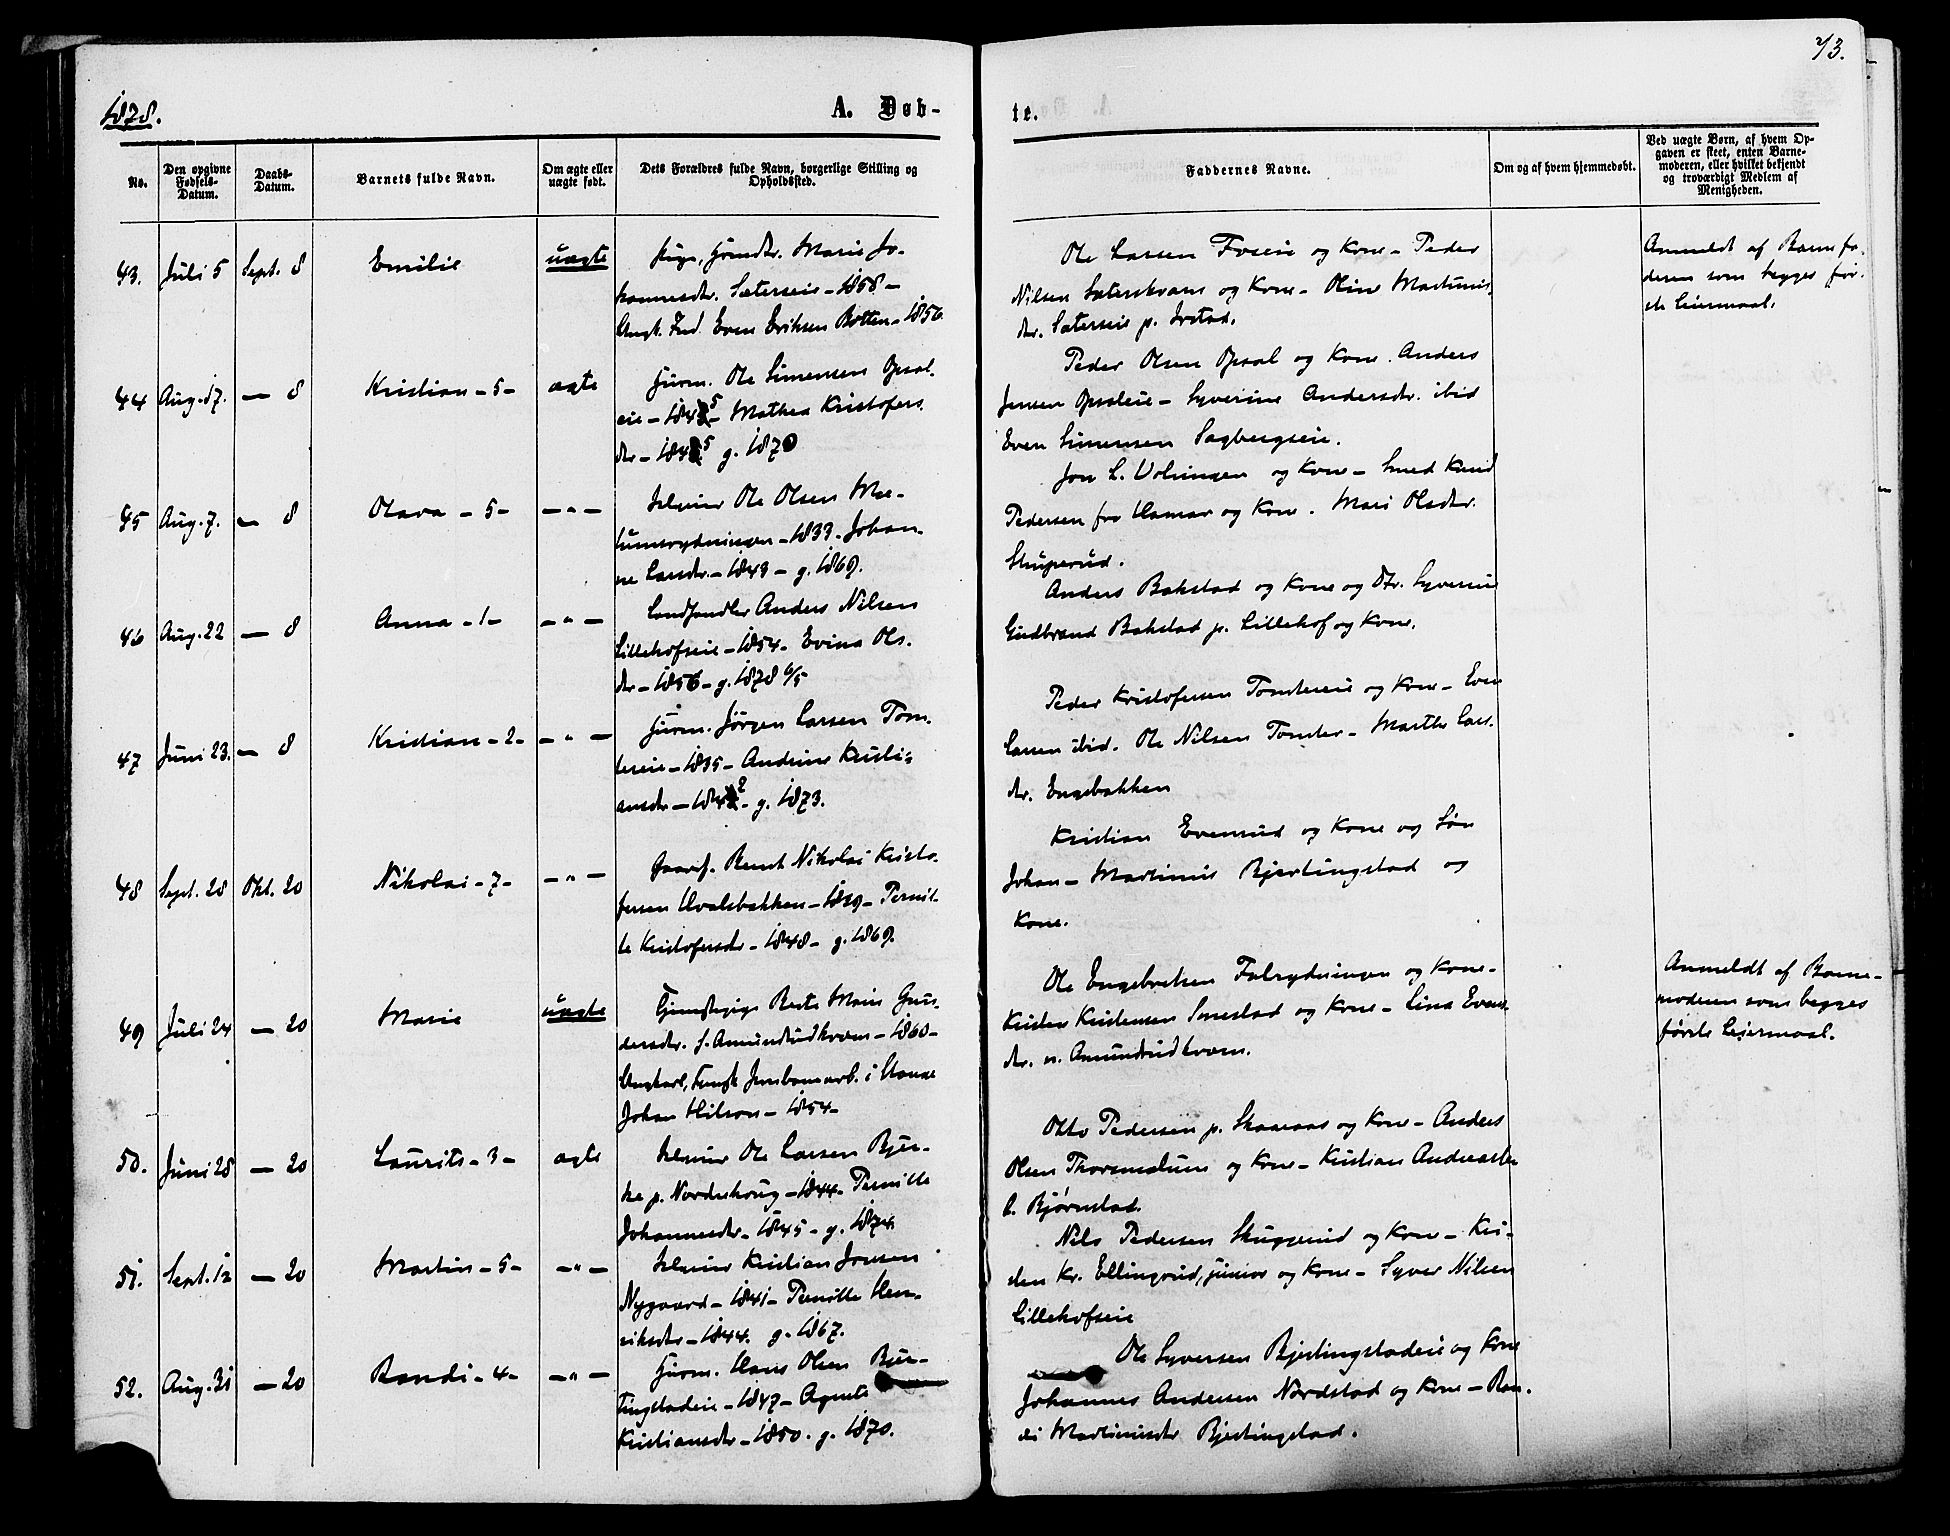 73.
1878.
A. Døb-
te.
No.
Den opgivne Fødsels-Datum.
Daabs-Datum.
Barnets fulde Navn.
Om ægte eller uægte født.
Dets Forældres fulde Navn, borgerlige Stilling og Opholdssted.
Faddernes Navne.
Om og af hvem hjemmedøbt.
Ved uægte Børn, af hvem Opgaven er skeet, enten Barnemoderen, eller hvilket bekjendt og troværdigt Medlem af Menigheden.
43. Juli 5 Sept. 8 Emilie uægte
Pige, Marie Jo-
hannesdtr. Sæterseie – 1858 –
Ungk. Ind. Even Eriksen Botten – 1856
Ole Larsen Foseie og Kone – Peder
Nilsen Sæterkvam og Kone – Oline Martinis
dtr. Sæterseie p. Ivstad.
Anmeldt af Barnefa-
deren som begges før-
ste Leiermaal.
44 Aug. 17. — 8 Kristian – 5 – ægte
Huusm. Ole Simensen Opsal-
eie – 1845 – Mathea Kristofers
dtr – 1845 g. 1870
Peder Olsen Opsal og Kone. Anders
Jensen Opsaleie – Syverine Andersdtr. ibid
Even Simensen Sagbergseie.
45 Aug. 7. — 8 Olava – 5 – — " —
Selveier Ole Olsen Mæ-
lumsrydningen – 1833. Johan-
ne Larsdtr. – 1843 – g. 1869.
Jon L. Volungen og Kone – Smed Knud
Pedersen fra Hamar og Kone. Mari Olsdtr.
Skuperud.
46 Aug. 22 — 8 Anna – 1 – — " —
Landhandler Anders Nilsen
Lillehofseie – 1854 – Evina Ols-
dtr – 1856 – g. 1878 6/5
Anders Bakstad og Kone og Dtr. Syverine
Gudbrand Bakstad p. Lillehof og Kone.
47 Juni 23. — 8 Kristian – 2 – — " —
Huusm. Jørgen Larsen Tom-
tereie – 1835 – Andrine Kristi-
ansdtr – 1842 – g. 1873.
Peder Kristofersen Tomtereie og Kone – Even
Larsen ibid. Ole Nilsen Tomter – Marthe Lars-
dtr. Engebakken
48 Sept. 28 Okt. 20 Nikolai – 7 – — " —
Gaardb. Bernt Nikolai Kristo-
fersen Hvalsbakken – 1839 – Pernil-
le Kristofersdtr – 1848 – g. 1869.
Kristian Evensrud og Kone og Søn
Johan – Martinus Bjertingstad og
Kone.
49 Juli 24 — 20 Marie uægte
Tjenestepige Berte Marie Gun-
dersdtr. f. Amundrudkvern – 1860 –
Ungkarl, Jernbanearb. i Stange
Johan Hilson – 1854 –
Ole Engebretsen Falsrydningen og Kone –
Kristen Kristensen Sonestad og Kone – Lina Evens-
dtr. n. Amundrudkvern.
Anmeldt af Barne-
moderen som begges
første Leiermaal.
50. Juni 28 — 20 Laurits – 3 – ægte
Selveier Ole Larsen Bjer-
ke p. Norderhoug – 1844 – Pernille
Johannesdtr – 1845 – g. 1874
Otto Pedersen p. Skaaraas og Kone – Anders
Olsen Thorsmælum og Kone – Kristian Andreas
L. Bjørnstad.
51. Sept. 12 — 20 Martin – 5 – — " —
Selveier Kristian Jonsen
Nygaard – 1841 – Pernille Hen-
riksdtr – 1844. g. 1867.
Nils Pedersen Skuggerud og Kone – Kri-
sten Kr. Ellingsrud, junior og Kone – Syver Nilsen
Lillehofseie
52. Aug. 31 — 20 Randi – 4 – — " —
Huusm. Hans Olsen Bjer-
tingstadeie – 1847 – Agnete
Kristiansdtr – 1850. g. 1870.
Ole Syversen Bjertingstadeie og Kone
Johannes Andersen Nordstad og Kone – Ran-
di Martinisdtr Bjertingstad.